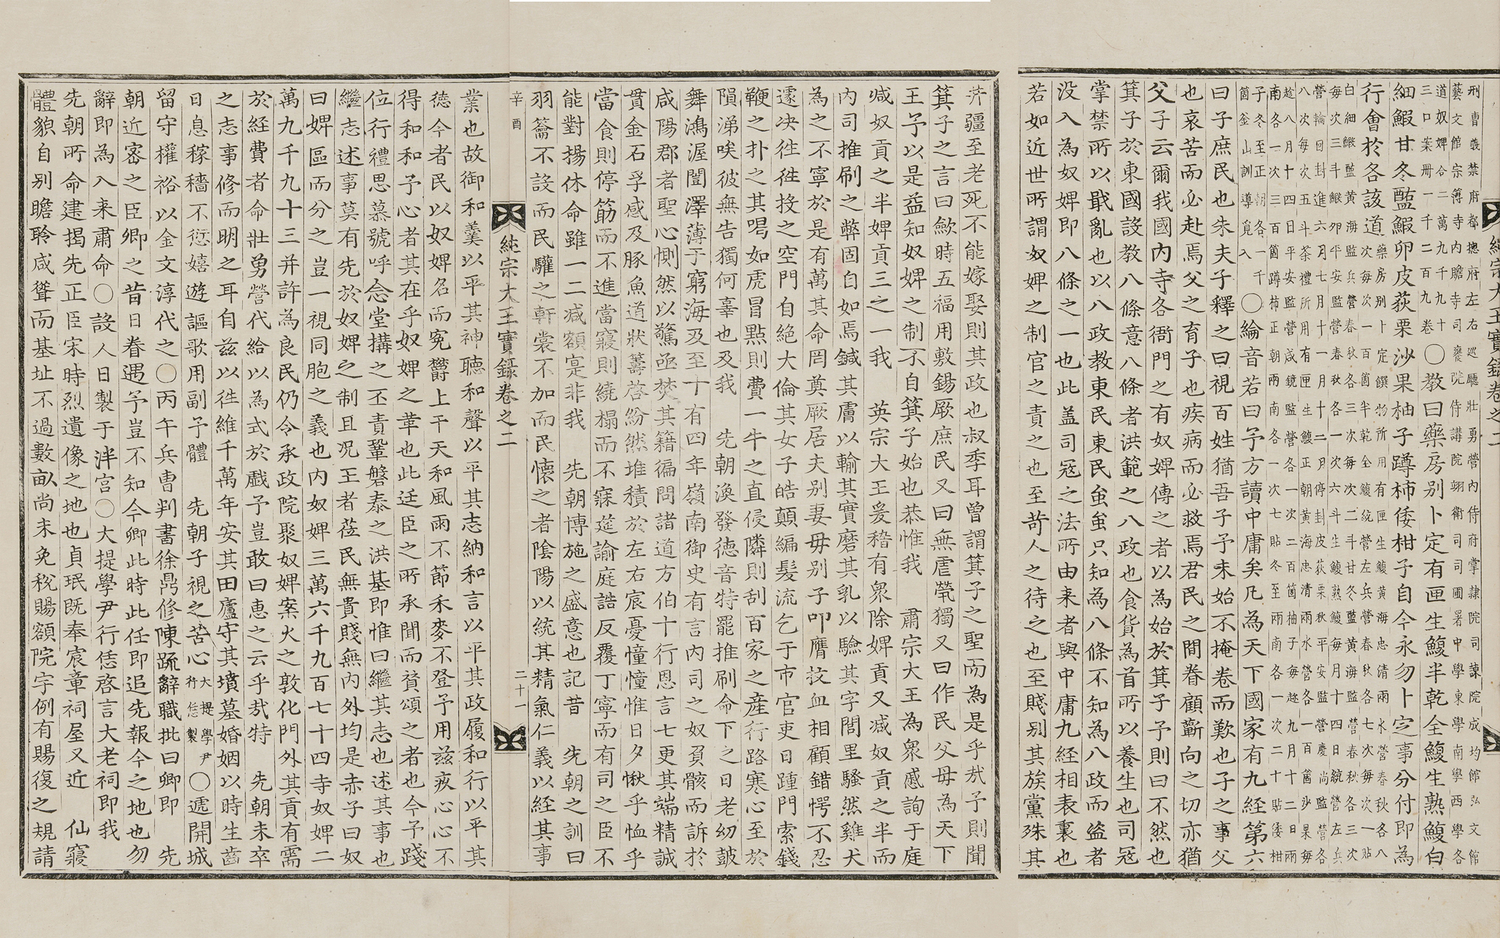 刑曹義禁府都摠府左右巡廳壯勇營內侍府掌隷院司諫院成均館弘文館
藝文館宗簿寺內贍寺司䆃院侍講院翊衛司司圃署中學東學南學西學各
道奴婢合二萬九千九十
三口案冊一千二百九卷〇敎曰藥房別卜定有匣生鰒半乾全鰒生熟鰒白
細鰕甘冬醢鰕卵皮荻栗沙果柚子蹲柿倭柑子自今永勿卜定事分付即爲
行會於各該道
〇綸音若曰予方讀中庸矣凡爲天下國家有九經第六
曰子庶民也朱夫子釋之曰視百姓猶吾子予未始不掩卷而歎也子之事父
也哀苦而必赴焉父之育子也疾病而必救焉君民之間眷顧蘄向之切亦猶
父子云爾我國內寺各衙門之有奴婢傳之者以爲始於箕子子則曰不然也
箕子於東國設敎八條意八條者洪範之八政也食貨爲首所以養生也司冦
掌禁所以戢亂也以八政敎東民東民蚩蚩只知爲八條不知爲八政而盜者
没入爲奴婢即八條之一也此盖司冦之法所由来者與中庸九經相表裏也
若如近世所謂奴婢之制官之責之也至苛人之待之也至賤别其族黨殊其
井疆至老死不能嫁娶則其政也叔季耳曾謂箕子之聖而爲是乎哉予則聞
箕子之言曰歛時五福用敷錫厥庶民又曰無虐煢獨又曰作民父母爲天下
王予以是益知奴婢之制不自箕子始也恭惟我　肅宗大王爲衆慼詢于庭
減奴貢之半婢貢三之一我　英宗大王爰稽有衆除婢貢又減奴貢之半而
內司推刷之弊固自如焉鍼其膚以輸其實磨其乳以驗其字閭里騷然雞犬
爲之不寧於是有萬其命罔奠厥居夫别妻毋别子叩膺抆血相顧錯愕不忍
遽决徃徃投之空門自絶大倫其女子皓顛編髮流乞于市官吏日踵門索錢
鞭之扑之其喝如虎冒點則費一牛之直侵隣則刮百家之產行路寒心至於
隕涕唉彼無告獨何辜也及我　先朝渙發德音特罷推刷命下之日老幼皷
舞鴻渥闓澤薄于窮海及至十有四年嶺南御史有言內司之奴貟骸而訴於
咸陽郡者聖心惻然以驚亟焚其籍徧問諸道方伯十行恩言七更其端精誠
貫金石孚感及豚魚道狀籌啓紛然堆積於左右宸憂憧憧惟日夕愀乎恤乎
當食則停筯而不進當寢則繞榻而不寐筵諭庭誥反覆丁寧而有司之臣不
能對揚休命雖一二减額寔非我　先朝博施之盛意也記昔　先朝之訓曰
羽籥不設而民驩之軒裳不加而民懷之者陰陽以統其精氣仁義以經其事
辛酉
純宗大王實錄卷之二
二十一
業也故御和羹以平其神聽和聲以平其志納和言以平其政履和行以平其
德今者民以奴婢名而寃欝上干天和風雨不節禾麥不登予用兹疚心心不
得和和予心者其在乎奴婢之革也此廷臣之所承聞而賛頌之者也今予踐
位行禮思慕號呼念堂搆之丕責鞏磐泰之洪基即惟曰繼其志也述其事也
繼志述事莫有先於奴婢之制且况王者莅民無貴賤無內外均是赤子曰奴
曰婢區而分之豈一視同胞之義也內奴婢三萬六千九百七十四寺奴婢二
萬九千九十三并許爲良民仍令承政院聚奴婢案火之敦化門外其貢有需
於經費者命壯勇營代給以爲式於戲予豈敢曰惠之云乎哉特　先朝未卒
之志事修而明之耳自兹以徃維千萬年安其田廬守其墳墓婚姻以時生齒
日息稼穡不愆嬉遊謳歌用副予體　先朝子視之苦心大提學尹行恁製〇遞開城
留守權裕以金文淳代之〇丙午兵曹判書徐鼎修陳疏辭職批曰卿即　先
朝近密之臣卿之昔日眷遇予豈不知今卿此時此任即追先報今之地也勿
辭即爲入来肅命〇設人日製于泮宮〇大提學尹行恁啓言大老祠即我
先朝所命建揭先正臣宋時烈遺像之地也貞珉既奉宸章祠屋又近　仙寢
體貌自别瞻聆咸聳而基址不過數畝尚未免稅賜額院宇例有賜復之規請